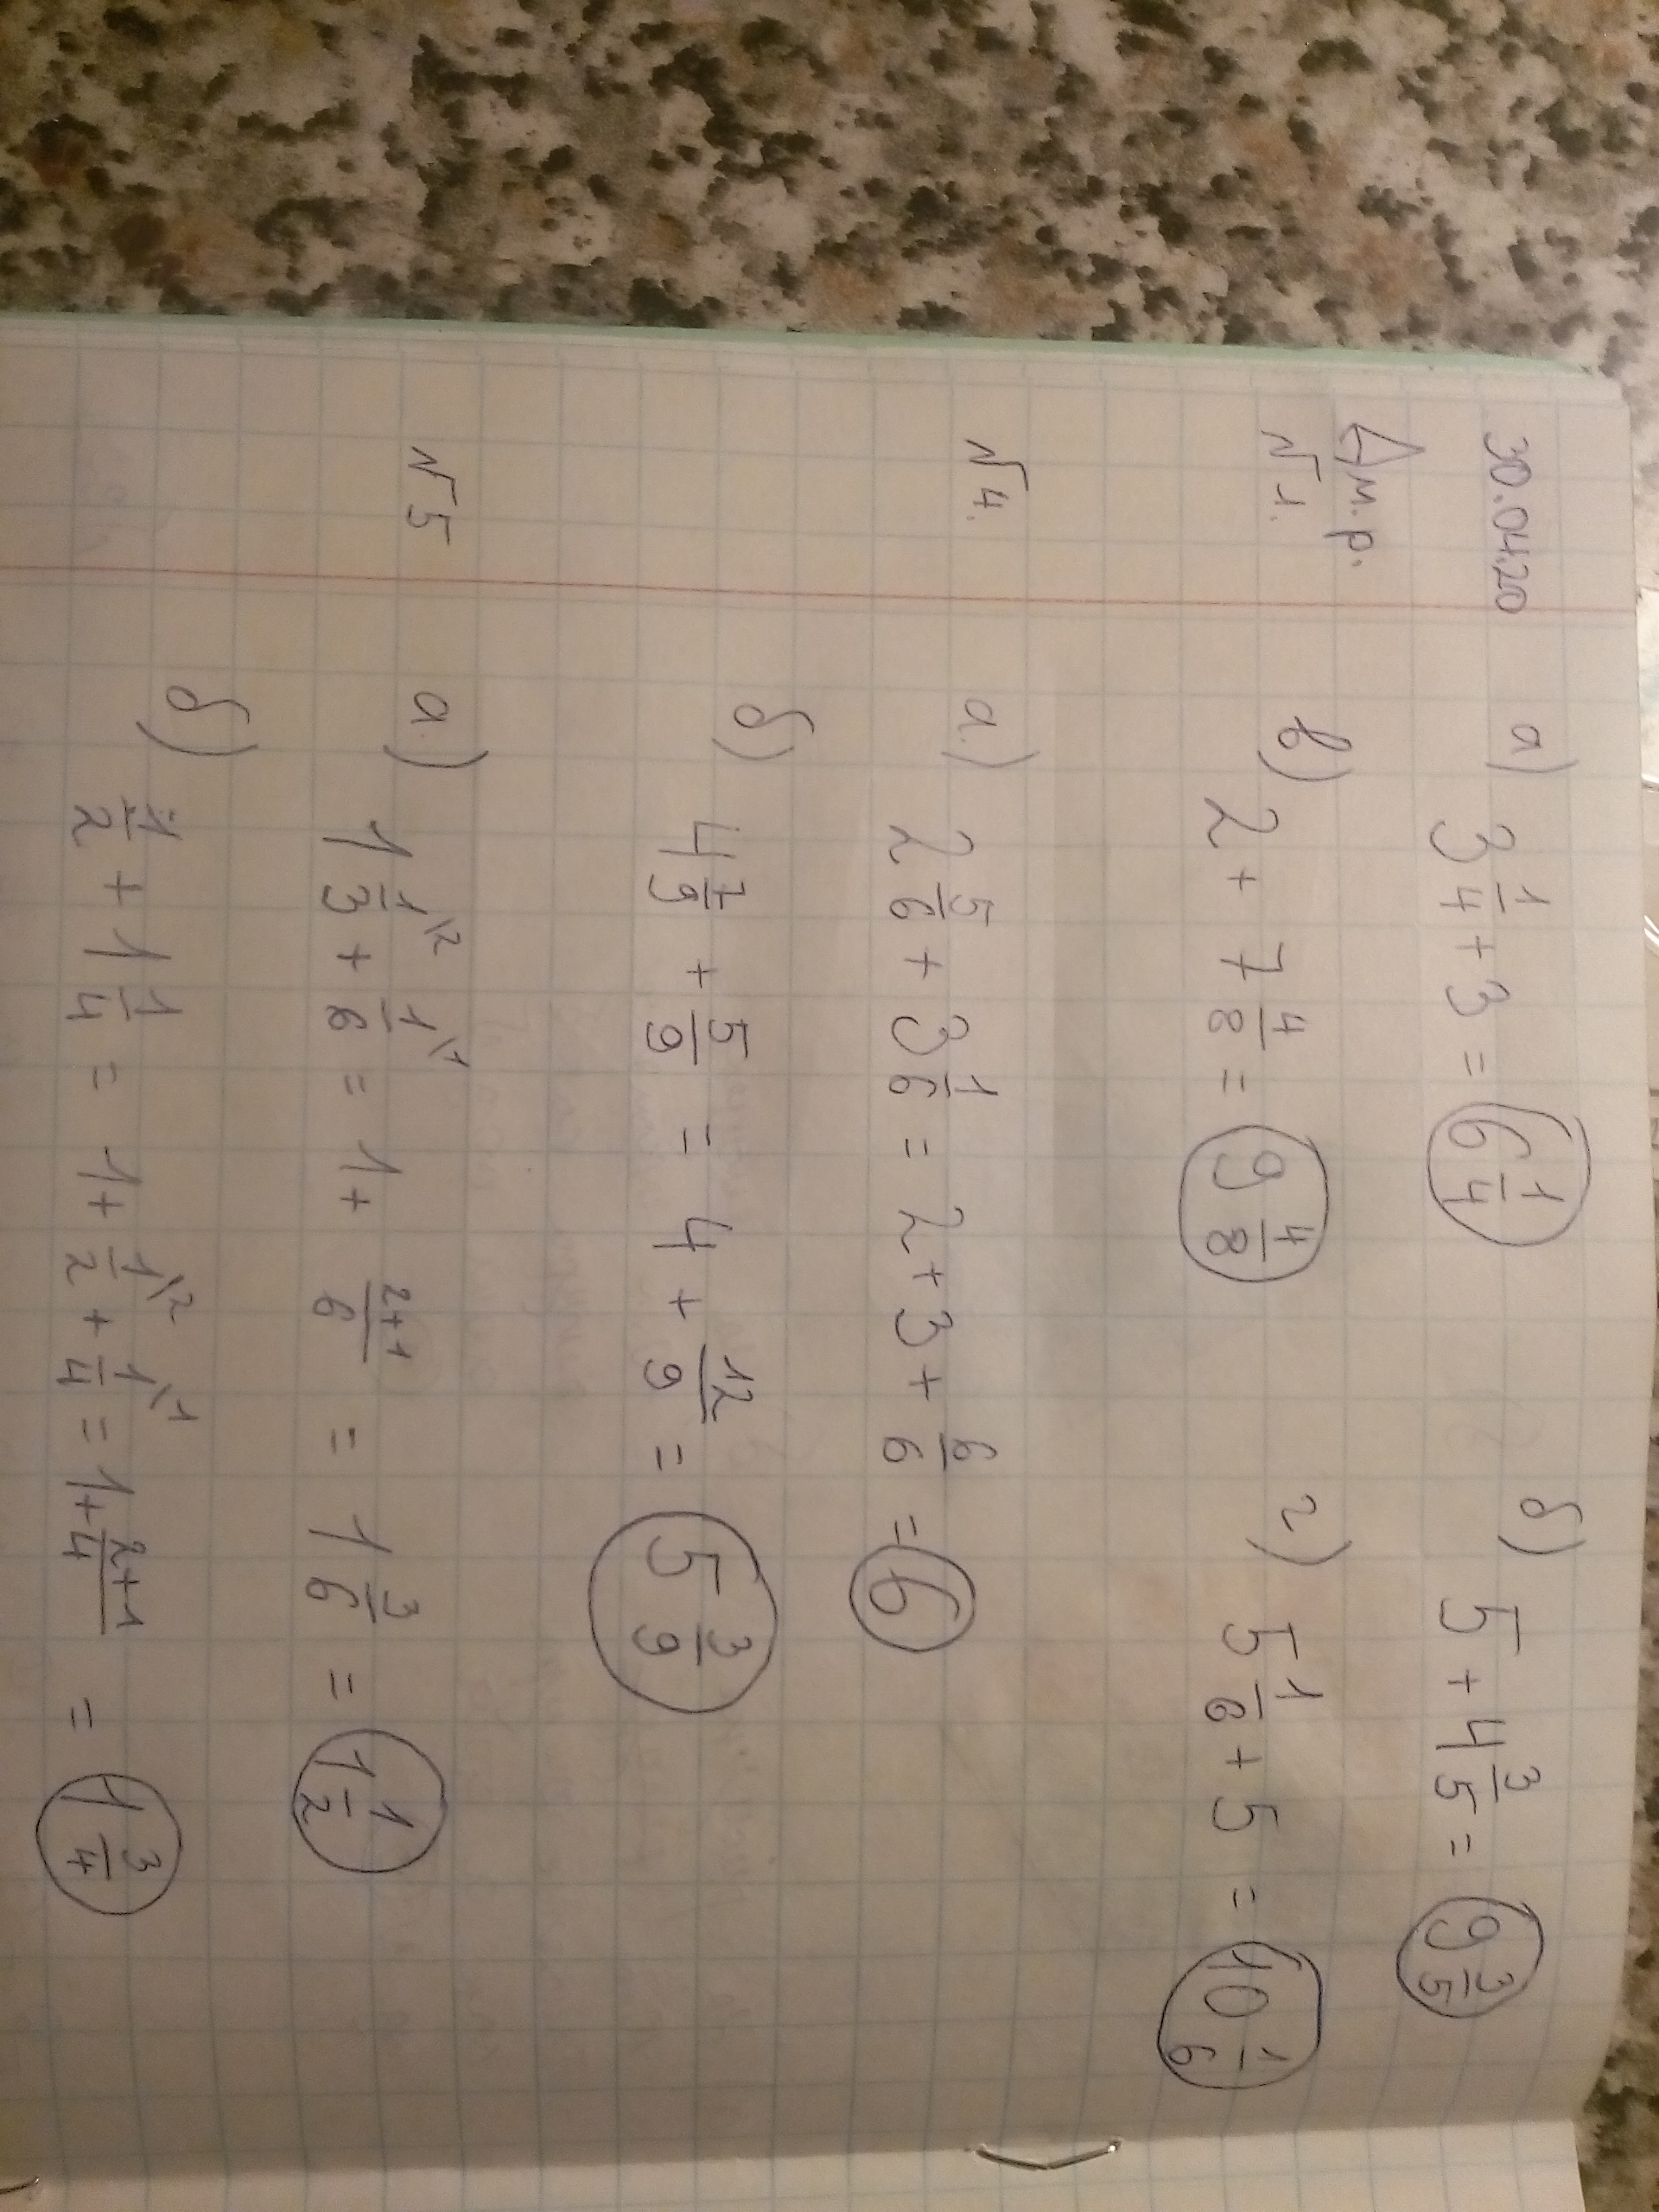 30.04.20
Дм.р.
а) 3 1/4 + 3 = 6 1/4 б) 5 + 4 3/5 = 9 3/5
№1. в) 2 + 7 4/8 = 9 4/8 г) 5 1/6 + 5 = 10 1/6
№4. а) 2 5/6 + 3 1/6 = 2+3+ 6/6 = 6
б) 4 7/9 + 5/9 = 4 + 12/9 = 5 3/9
№5 а) 1 1\2/3 + 1\1/6 = 1 + 2+1/6 = 1 3/6 = 1 1/2
б) 1/2 + 1 1/4 = 1+ 1\2/2 + 1\1/4 = 1+ 2+1/4 = 1 3/4